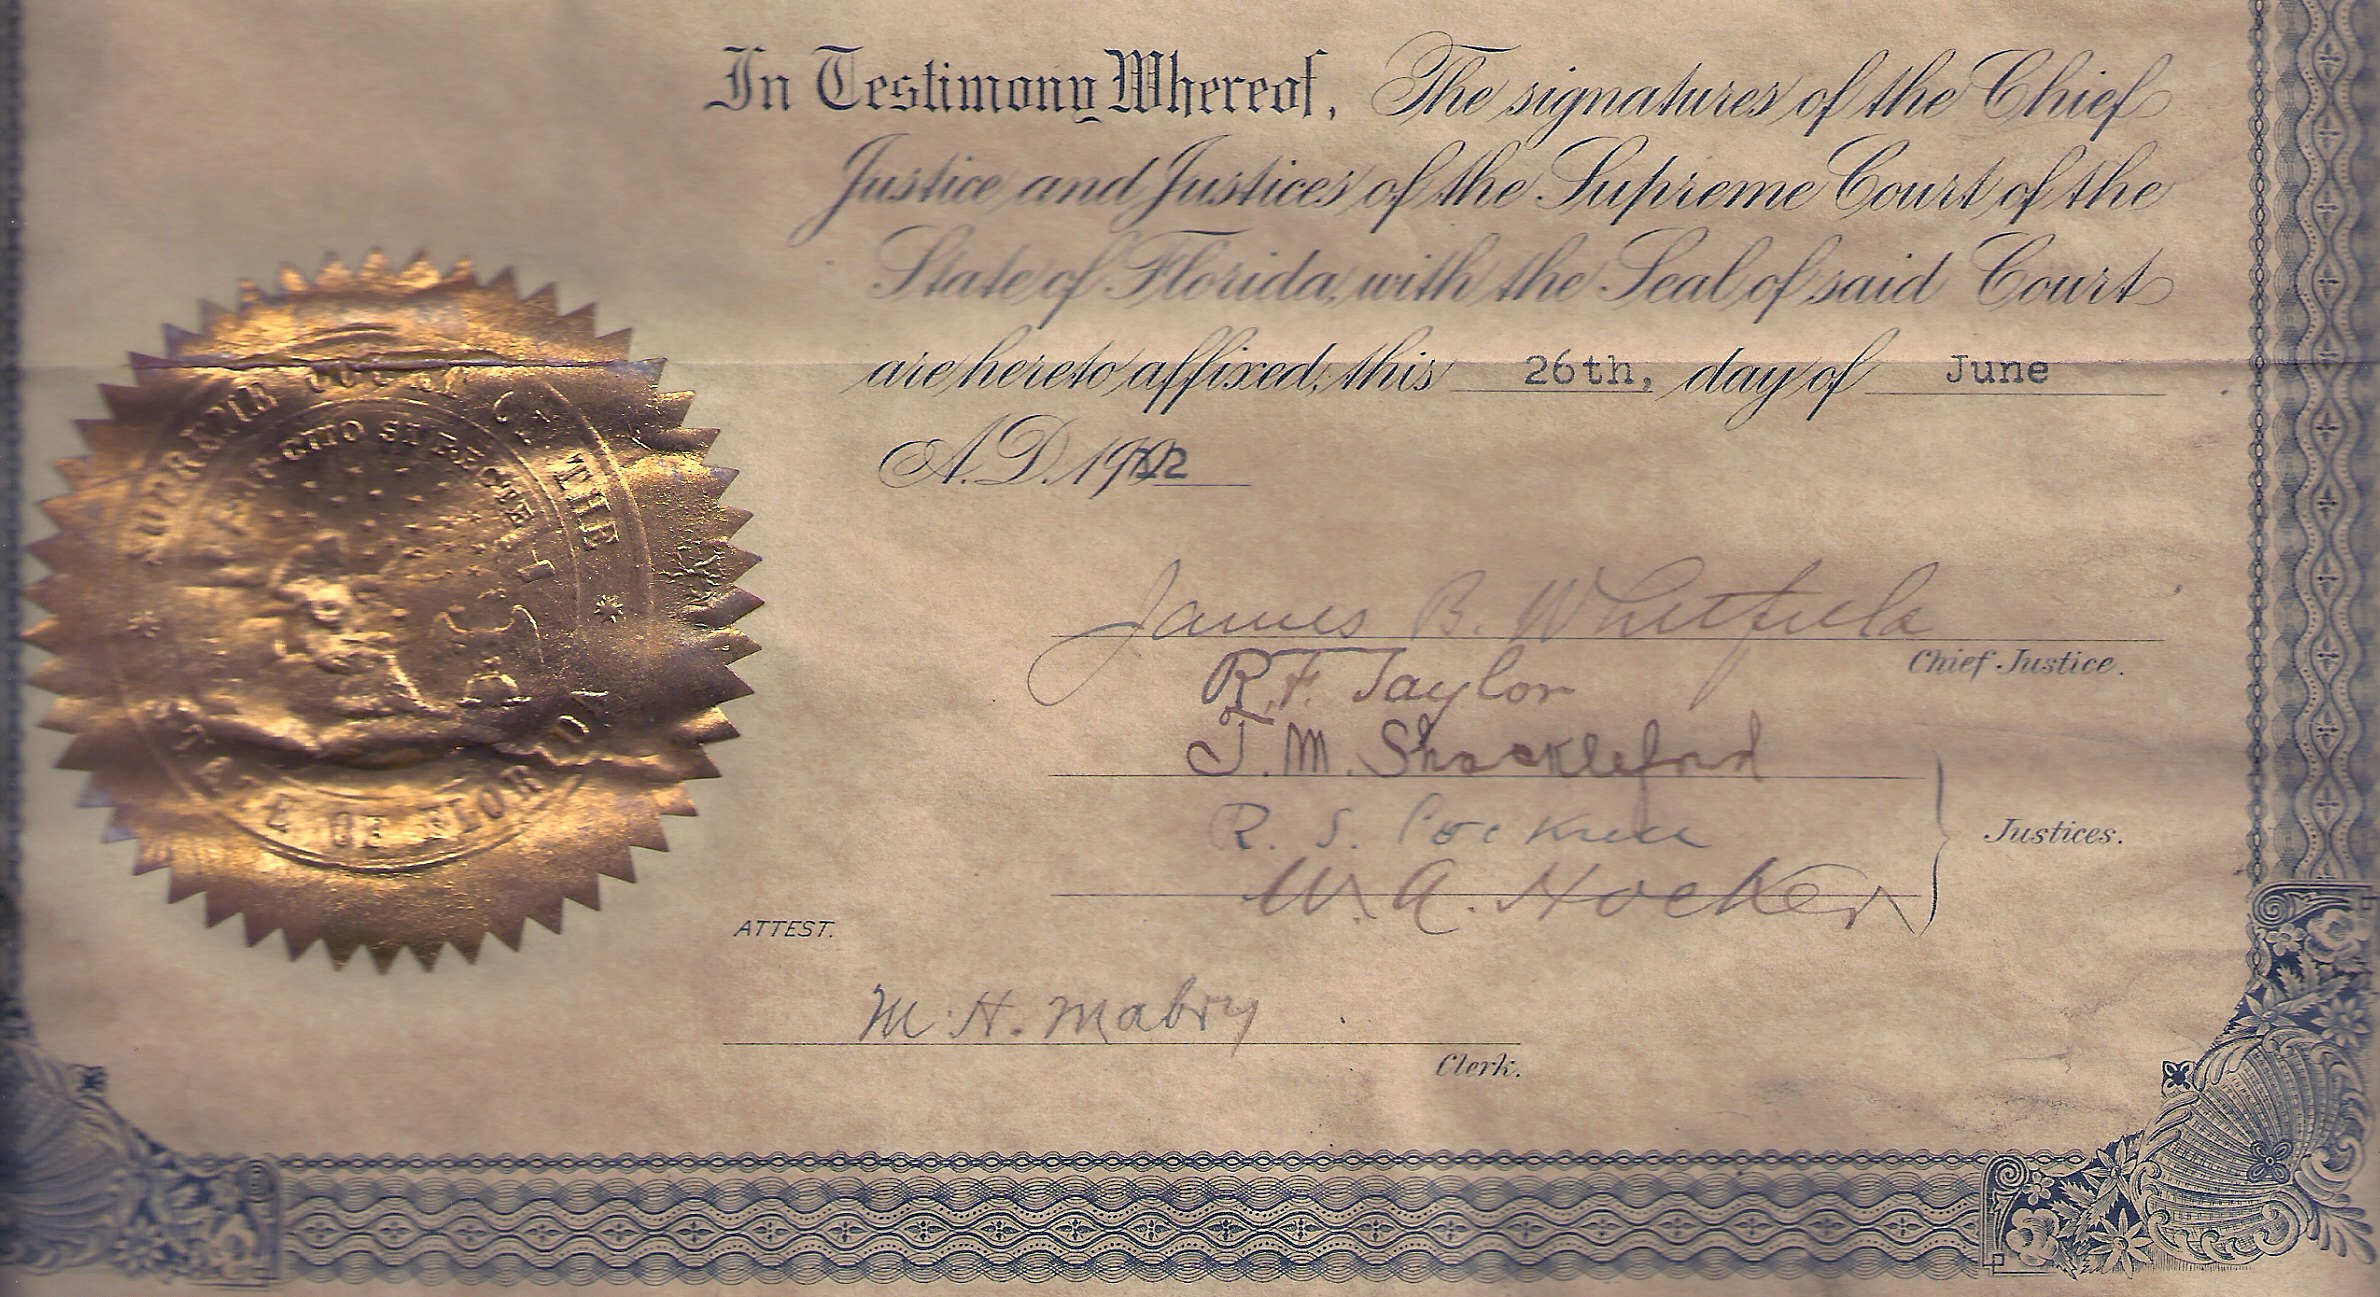 In Testimony Whereof, The signatures of the Chief
Justice and Justices of the Supreme Court of the
State of Florida, with the Seal of said Court
are hereto affixed, this 26th, day of June
A.D. 1912
James B. Whitfield
Chief Justice.
R.F. Taylor
T. M. Shackleford
R. S. Cockrell
Justices.
W. A. Hocker
ATTEST.
M. H. Mabry
Clerk.
SUPREME COURT OF THE
STATE OF FLORIDA